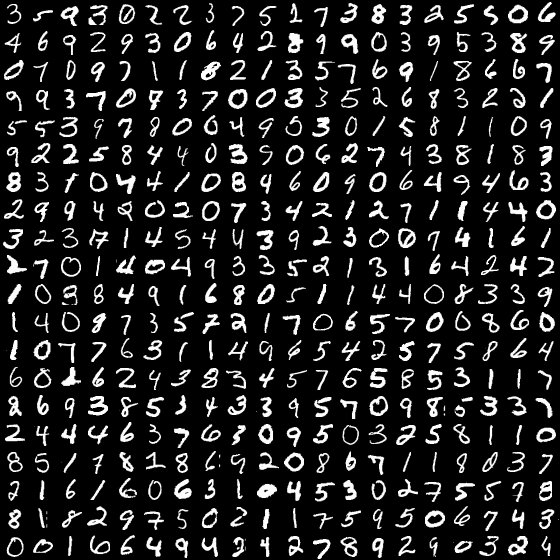 3 5 9 3 0 2 2 3 7 5 1 7 3 8 3 2 5 5 0 6
4 6 9 2 9 3 0 6 4 2 8 9 9 0 3 9 5 3 8 9
0 7 0 9 7 1 1 8 2 1 3 5 7 6 9 1 8 6 6 7
9 9 3 7 0 7 3 7 0 0 3 3 5 2 6 8 3 2 2 1
5 5 3 9 7 8 0 0 4 9 5 3 0 1 5 8 1 1 0 9
9 2 2 5 8 4 4 0 3 9 0 6 2 7 4 3 8 1 8 3
8 3 1 0 4 4 1 0 8 4 6 0 9 0 6 4 9 4 6 3
2 9 9 4 2 0 2 0 7 3 4 2 1 2 7 1 1 4 4 0
3 2 3 7 1 4 5 4 4 3 9 2 3 0 0 7 4 1 6 1
2 7 0 1 4 0 4 9 3 3 5 2 1 3 1 6 4 2 4 2
1 0 8 8 4 9 1 6 8 0 5 1 1 4 4 0 8 3 3 9
1 4 0 9 7 3 5 7 2 1 7 0 6 5 7 0 0 8 6 0
1 0 7 7 6 3 1 1 4 9 6 5 4 2 5 7 5 8 6 4
6 0 6 2 4 3 8 3 4 5 7 6 5 8 5 3 1 1 7
8 6 9 3 8 5 3 4 3 3 9 5 7 0 9 8 5 3 3 7
2 4 4 4 6 3 7 6 3 0 9 5 0 3 2 5 8 1 1 0
8 5 1 7 8 1 8 6 9 2 0 8 6 7 1 1 8 0 3 7
2 1 6 1 6 0 6 3 1 0 4 5 3 0 2 7 5 5 7 8
8 1 8 2 9 7 5 0 2 1 1 7 5 9 5 0 6 7 4 3
0 0 1 6 6 4 9 4 2 4 2 7 8 9 2 9 0 3 2 4